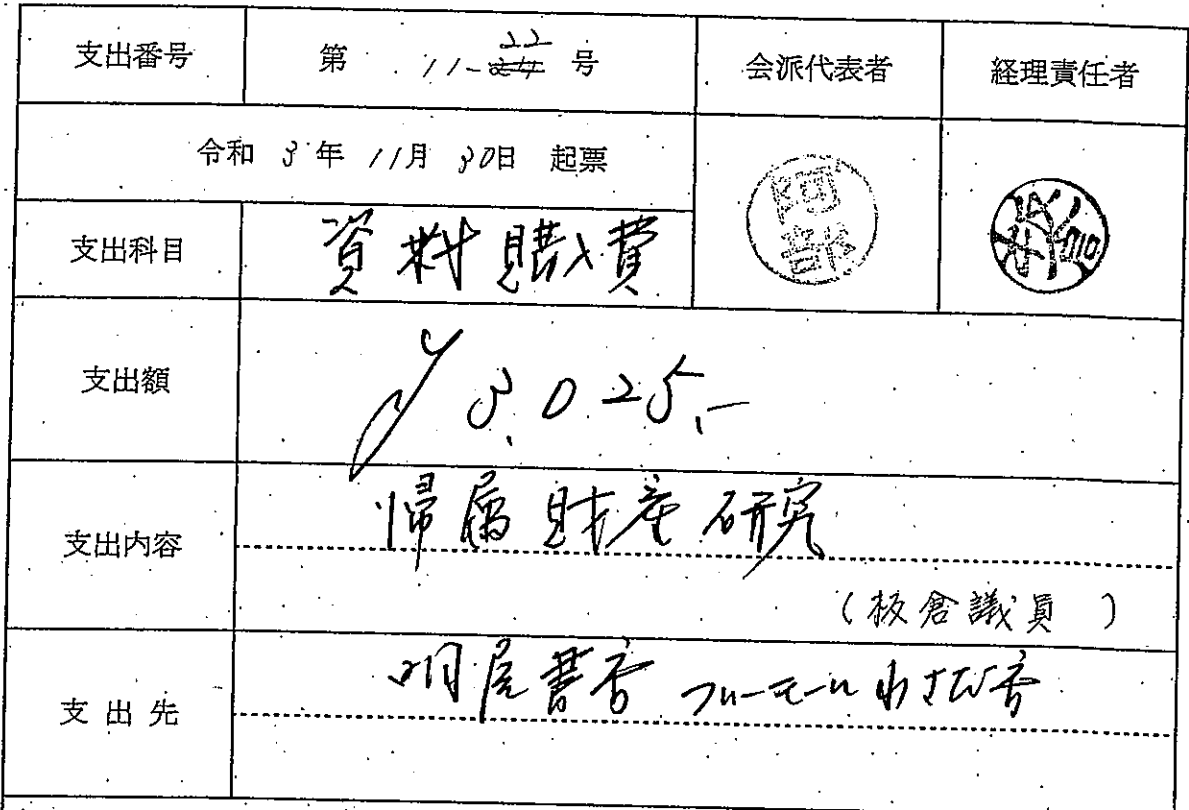 支出番号 第 11-22 号 会派代表者 経理責任者
令和 3年 11月 30日 起票
阿部
支出科目 資料購入費
支出額 ¥3,025.-
支出内容 帰属財産研究
(板倉議員 )
支出先 明屋書店